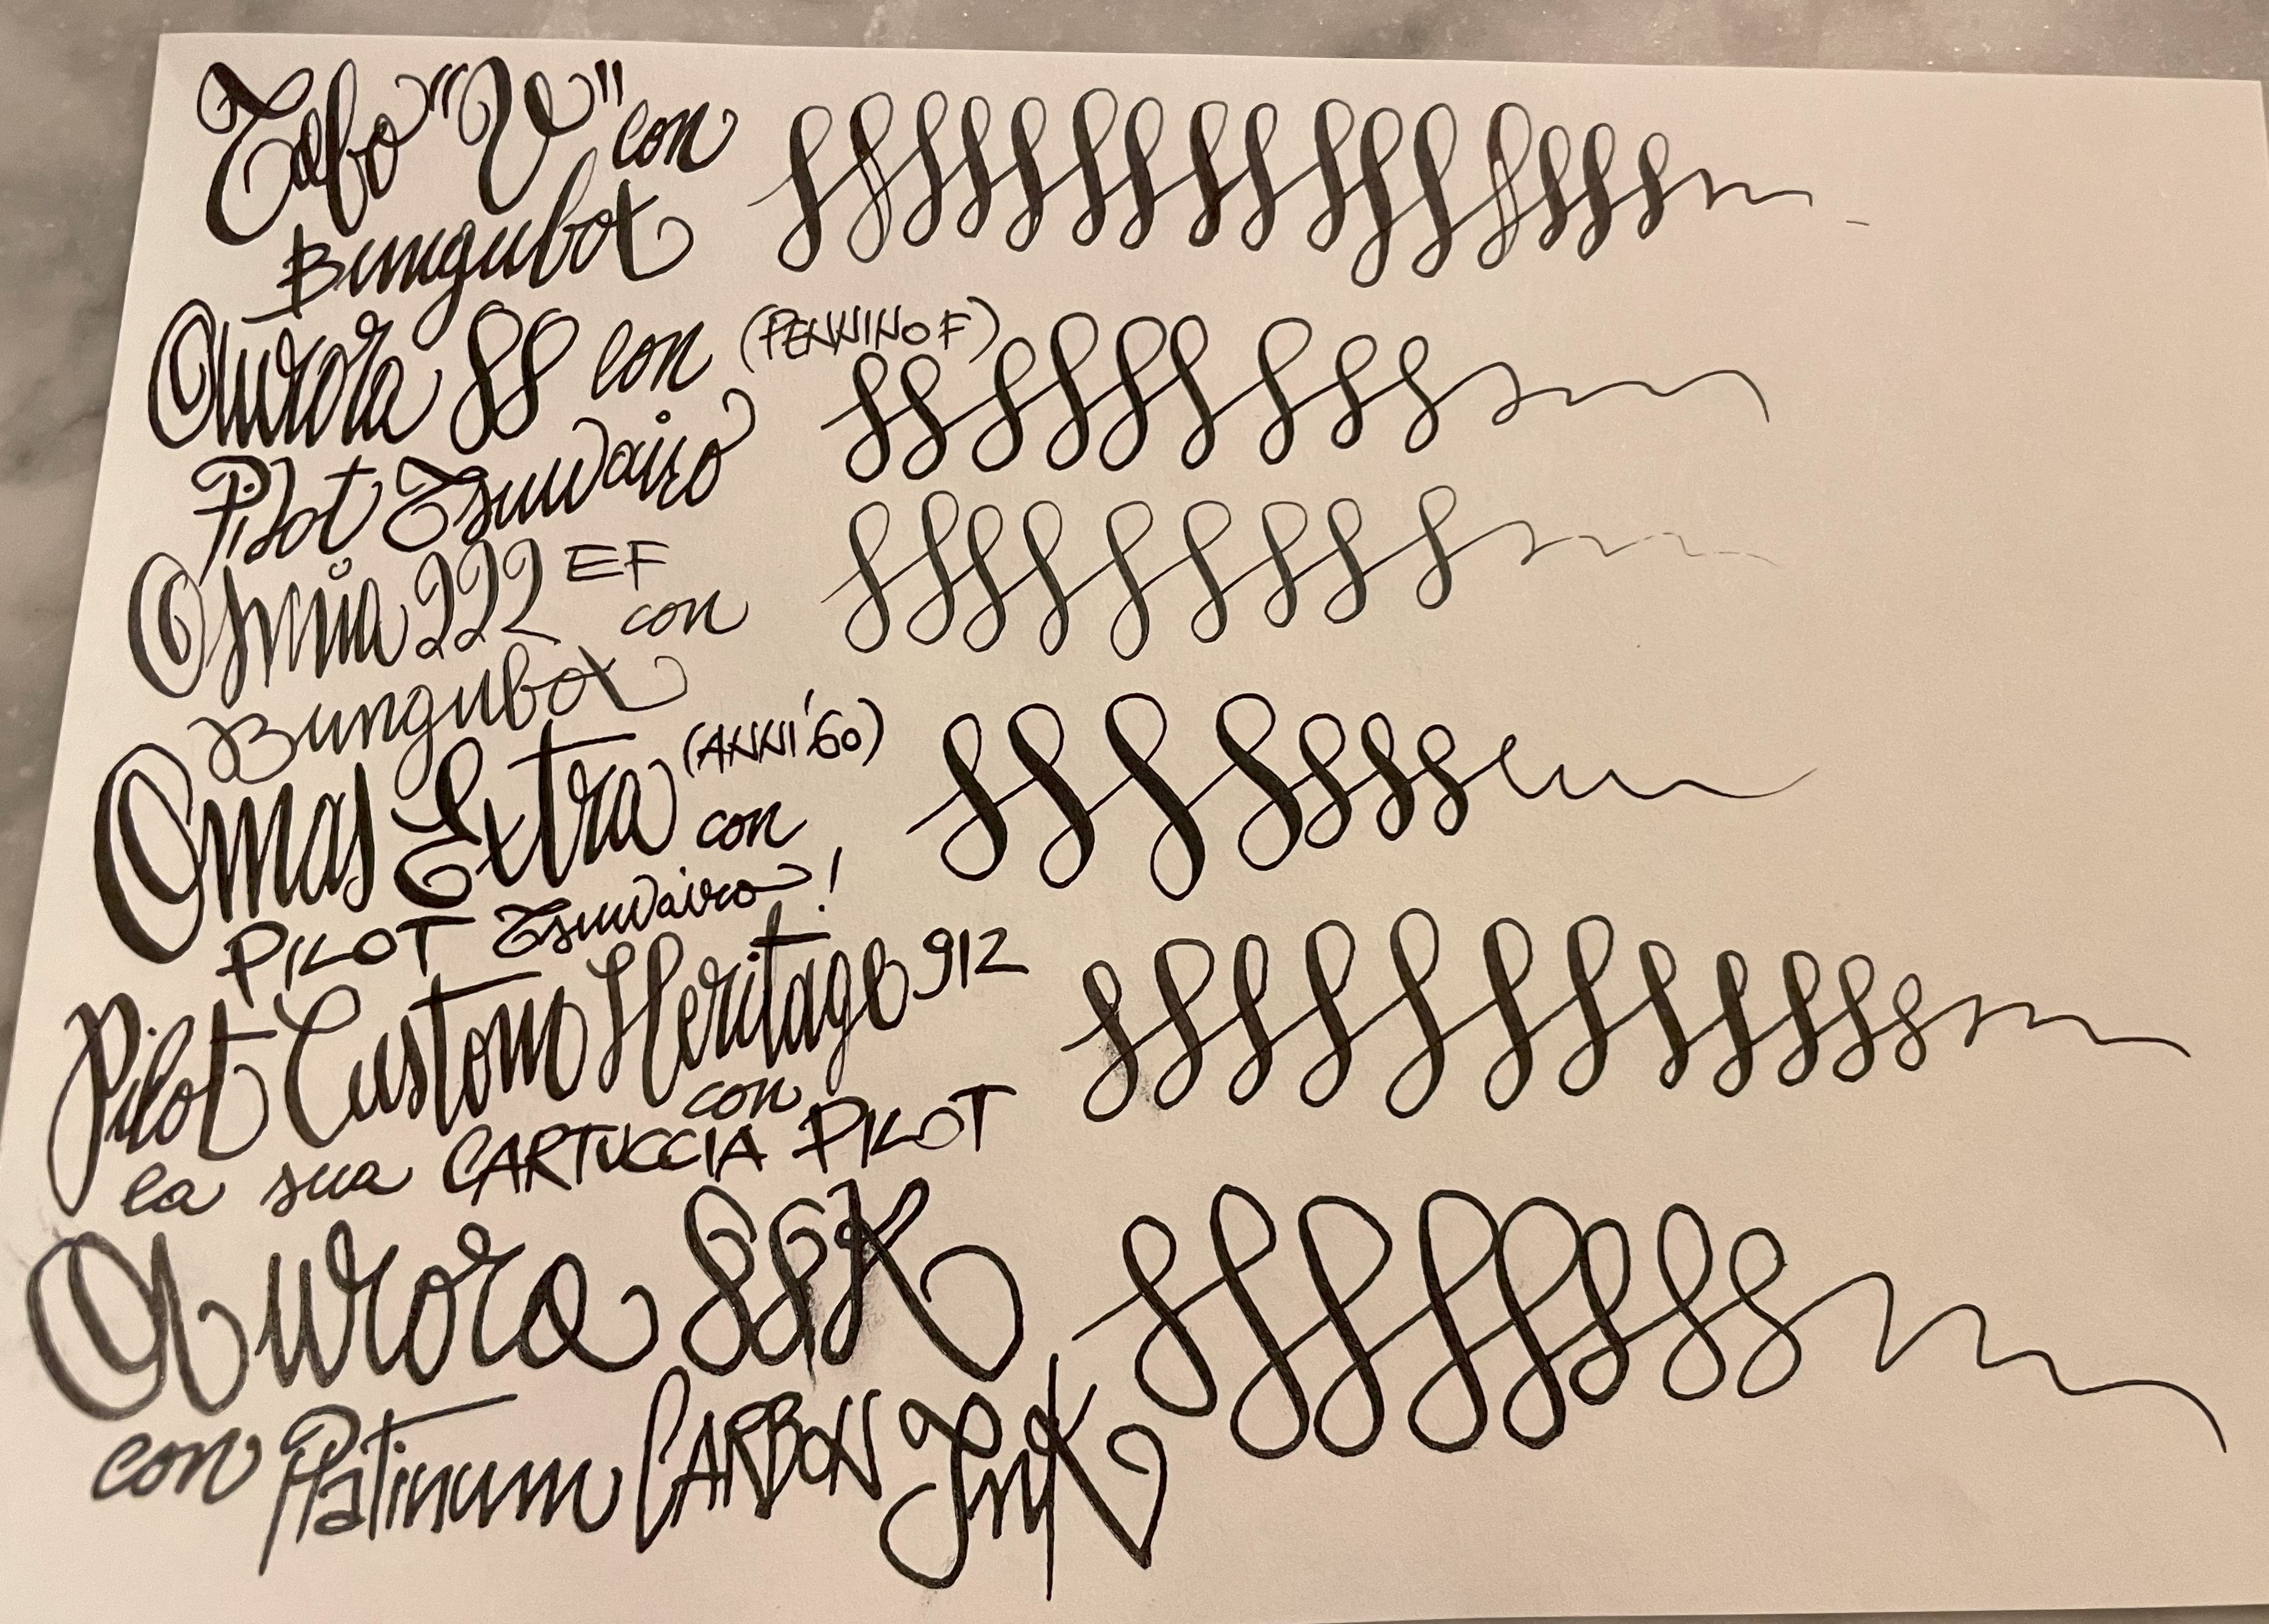 Tabo "V" con
Bungubox
Aurora 88 con (PENNINO F)
Pilot Tsuwairo
Osmia 222 EF
con
Bungubox
Omas Extra (ANNI '60)
con
PILOT Tsuwairo!
Pilot Custom Heritage 912
con
la sua CARTUCCIA PILOT
Aurora 88K
con Platinum CARBON InK